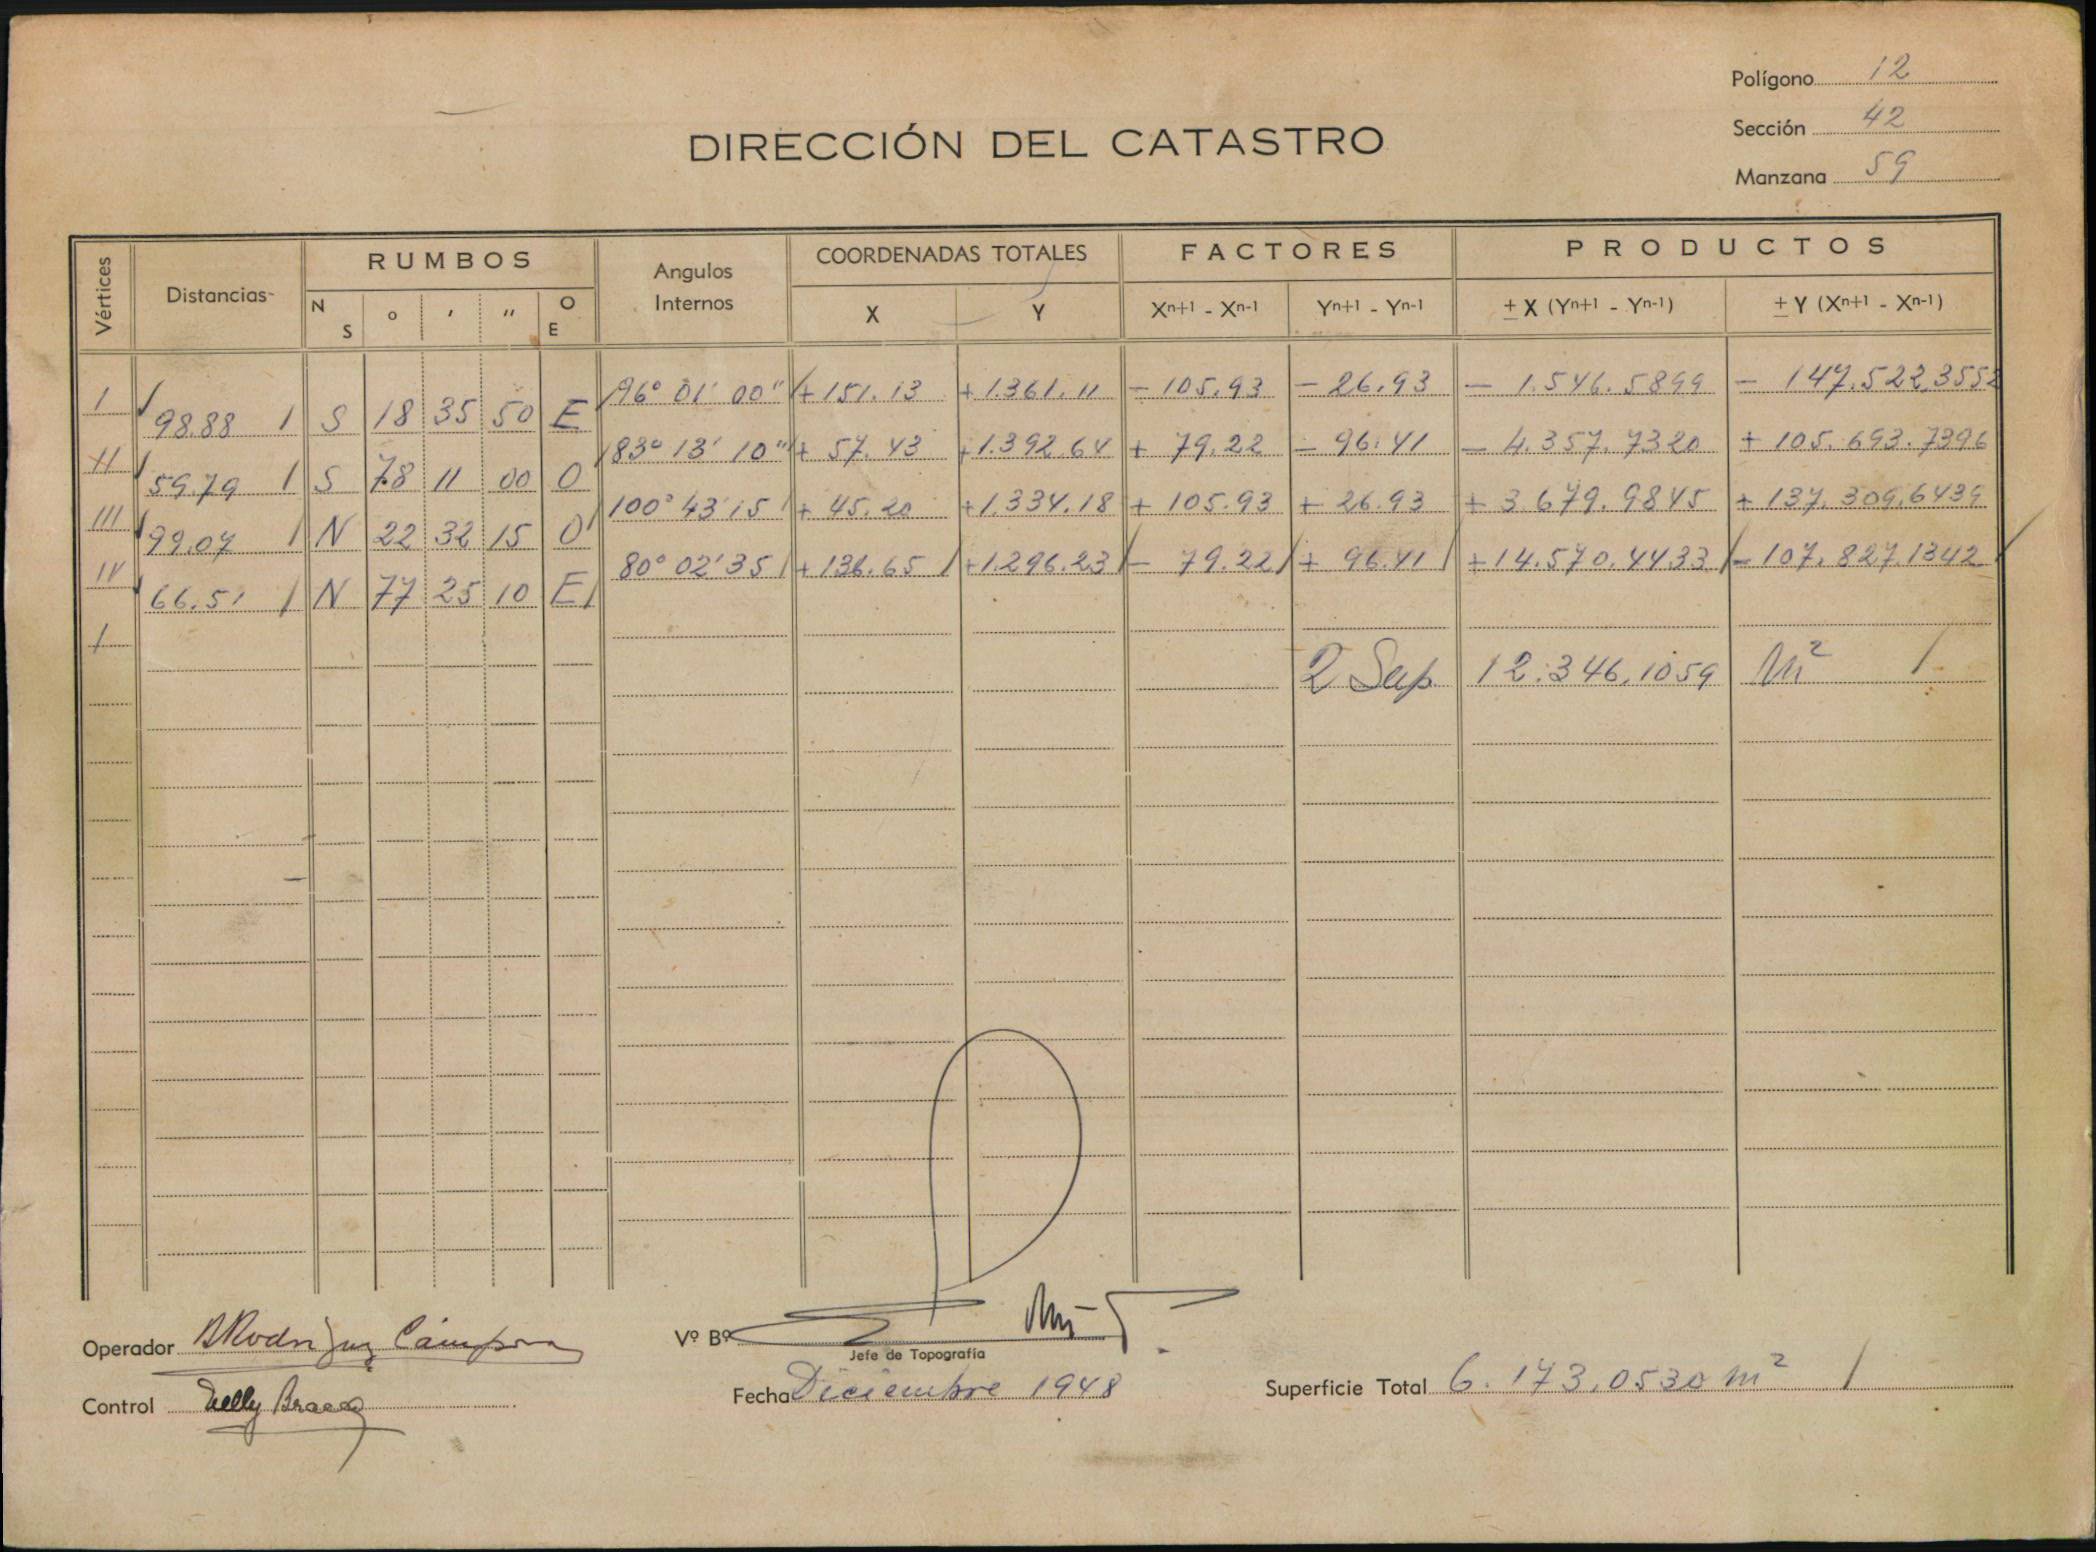 Polígono 12
Sección 42
Manzana 59
DIRECCIÓN DEL CATASTRO
Vértices Distancias RUMBOS Angulos Internos COORDENADAS TOTALES FACTORES PRODUCTOS
N S ° ' " O E X Y Xn+1 - Xn-1 Yn+1 - Yn-1 ± X (Yn+1 - Yn-1) ± Y (Xn+1 - Xn-1)
I 96° 01' 00" + 151.13 + 1.361.11 - 105.93 - 26.93 - 1.546.5899 - 147.522,3552
98.88 S 18 35 50 E
II 83° 13' 10" + 57.43 + 1.392.64 + 79.22 - 96.41 - 4.357.7320 + 105.693.7396
59.79 S 78 11 00 O
III 100° 43' 15 + 45.20 + 1.334.18 + 105.93 + 26.93 + 3.679.9845 + 137.309.6439
99.07 N 22 32 15 O
IV 80° 02' 35 + 136.65 + 1.296.23 - 79.22 + 96.41 + 14.570.4433 - 107.827.1342
66.51 N 77 25 10 E
I
2 Sup. 12.346,1059 m²
Operador BRodriguez Cámpora
Vº Bº
Jefe de Topografía
Control Nelly Bracco
Fecha Diciembre 1948
Superficie Total 6.173,0530 m²